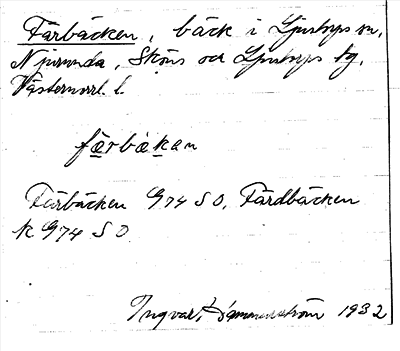 Färbäcken, bäck i Ljustorps sn,
Njurunda, Sköns och Ljustorps tg,
Västernorrl. l.
färbäkan
Färbäcken G74 SO, Färdbäcken
k G74 SO
Ingvar Hammarström 1932